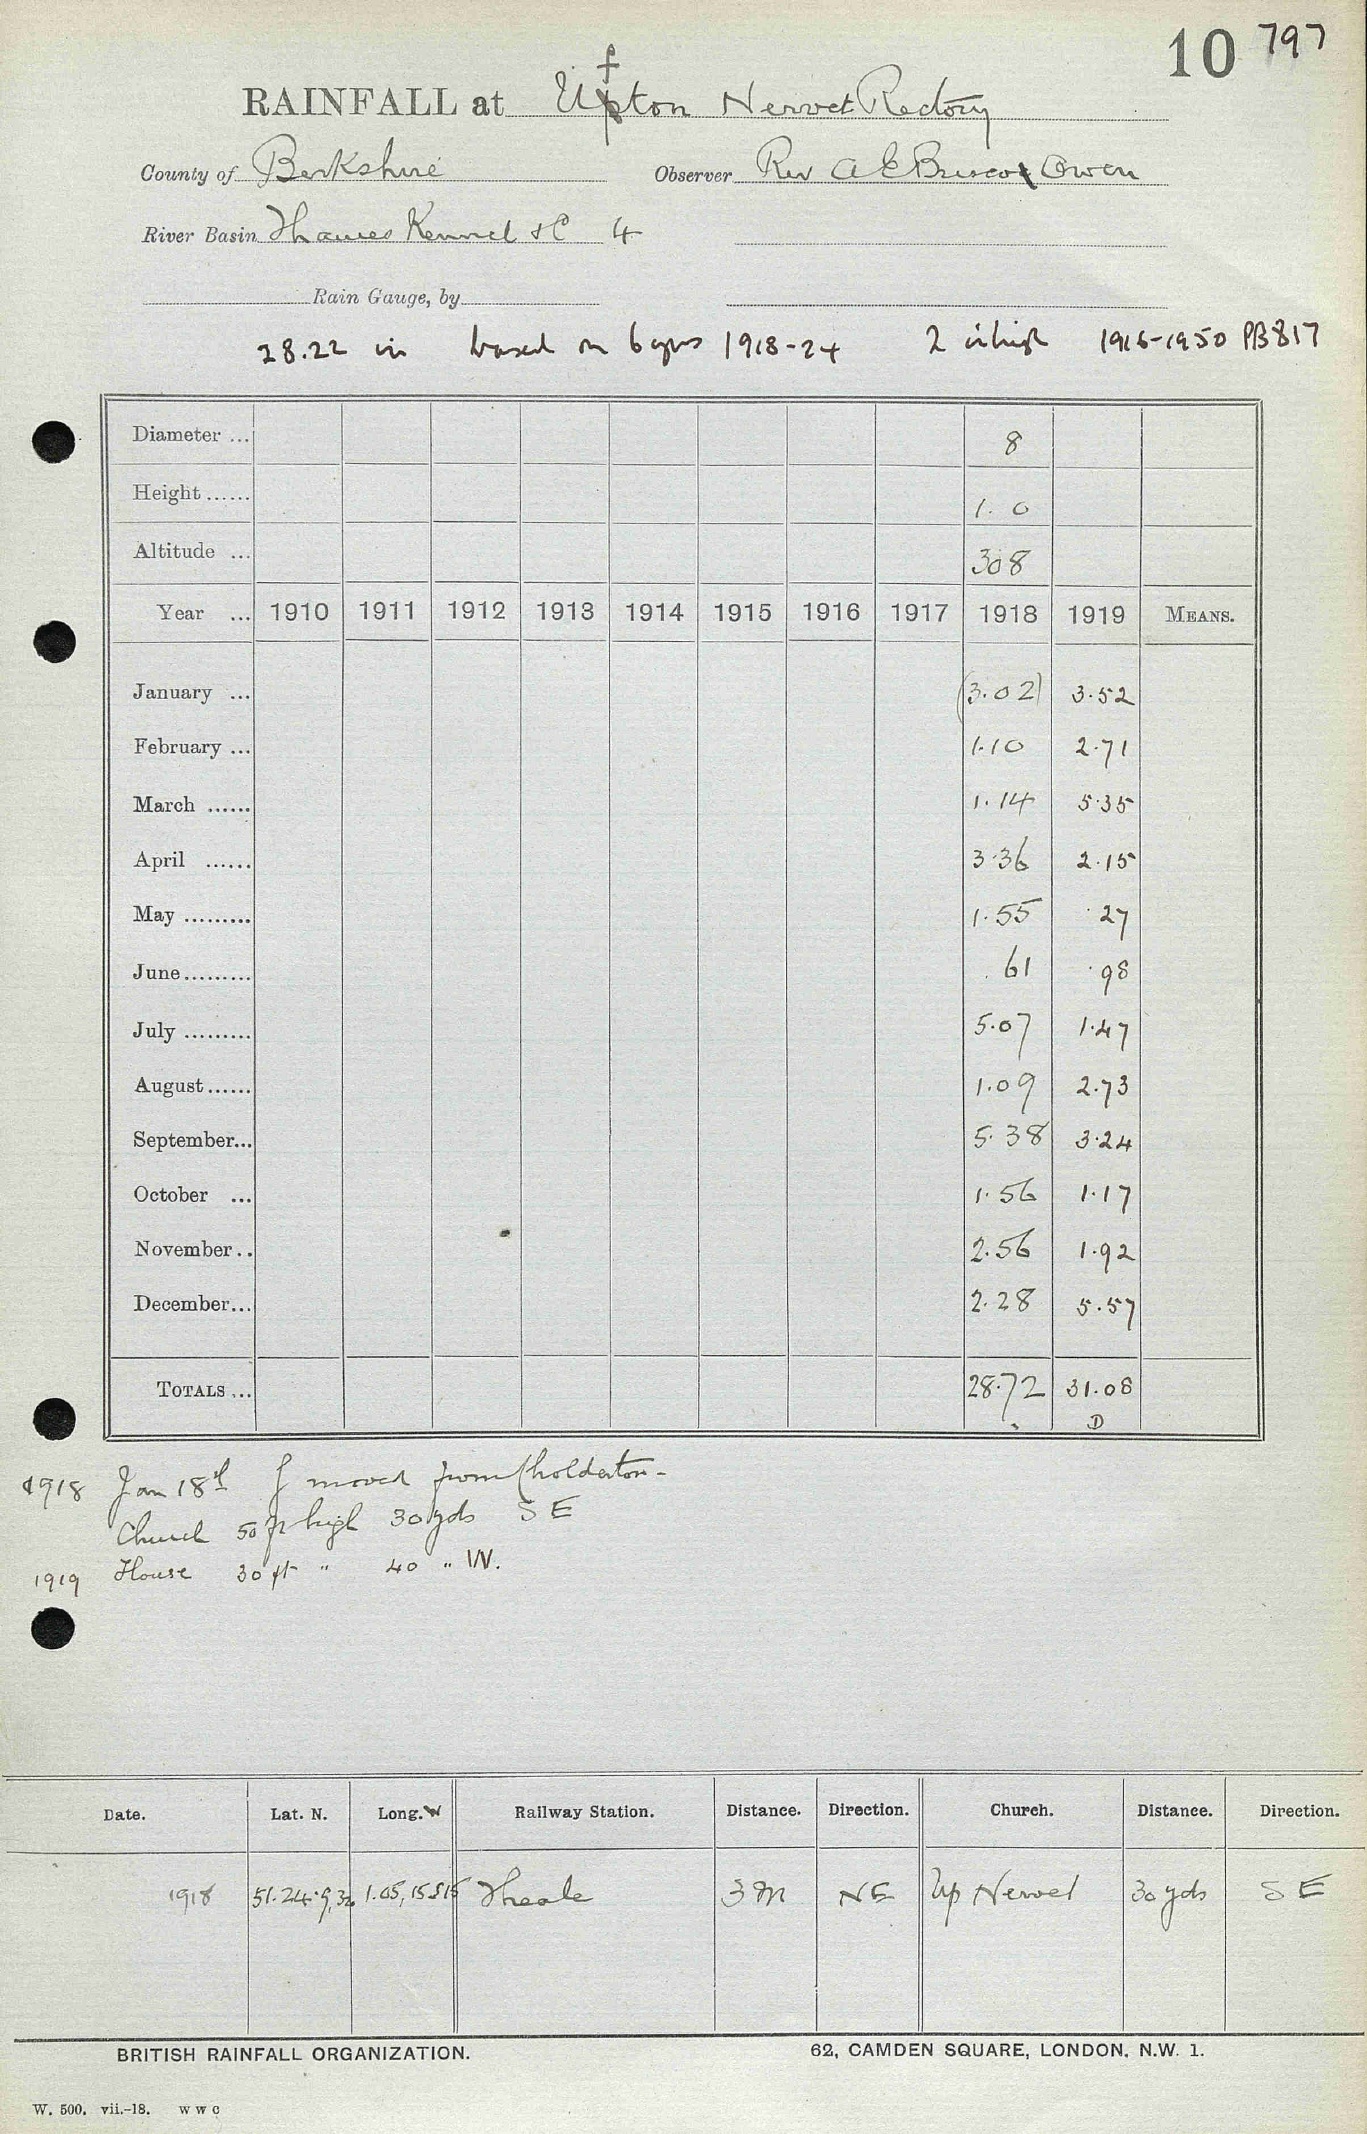 10 797
RAINFALL at Ufton Nervet Rectory
County of Berkshire Observer Rev A E Briscoe Owen
River Basin Thames Kennet &c 4
Rain Gauge, by
28.22 in based on 6 yrs 1918-24 2 in high 1916-1950 PB817
Diameter ... 8
Height ...... 1. 0
Altitude ... 308
Year ... 1910 1911 1912 1913 1914 1915 1916 1917 1918 1919 MEANS.
January ... (3.02) 3.52
February ... 1.10 2.71
March ...... 1.14 5.35
April ...... 3.36 2.15
May ......... 1.55 .27
June......... .61 .98
July ......... 5.07 1.47
August...... 1.09 2.73
September... 5.38 3.24
October ... 1.56 1.17
November.. 2.56 1.92
December... 2.28 5.57
TOTALS ... 28.72 31.08
D
1918 Jan 18th moved from Cholderton
Church 50 ft high 30 yds S E
1919 House 30 ft " 40 " W.
Date. Lat. N. Long. W Railway Station. Distance. Direction. Church. Distance. Direction.
1918 51.24.9,32 1.05,15 Theale 3 m NE Up Nervet 30 yds S E
BRITISH RAINFALL ORGANIZATION. 62, CAMDEN SQUARE, LONDON, N.W. 1.
W. 500. vii.-18. w w c